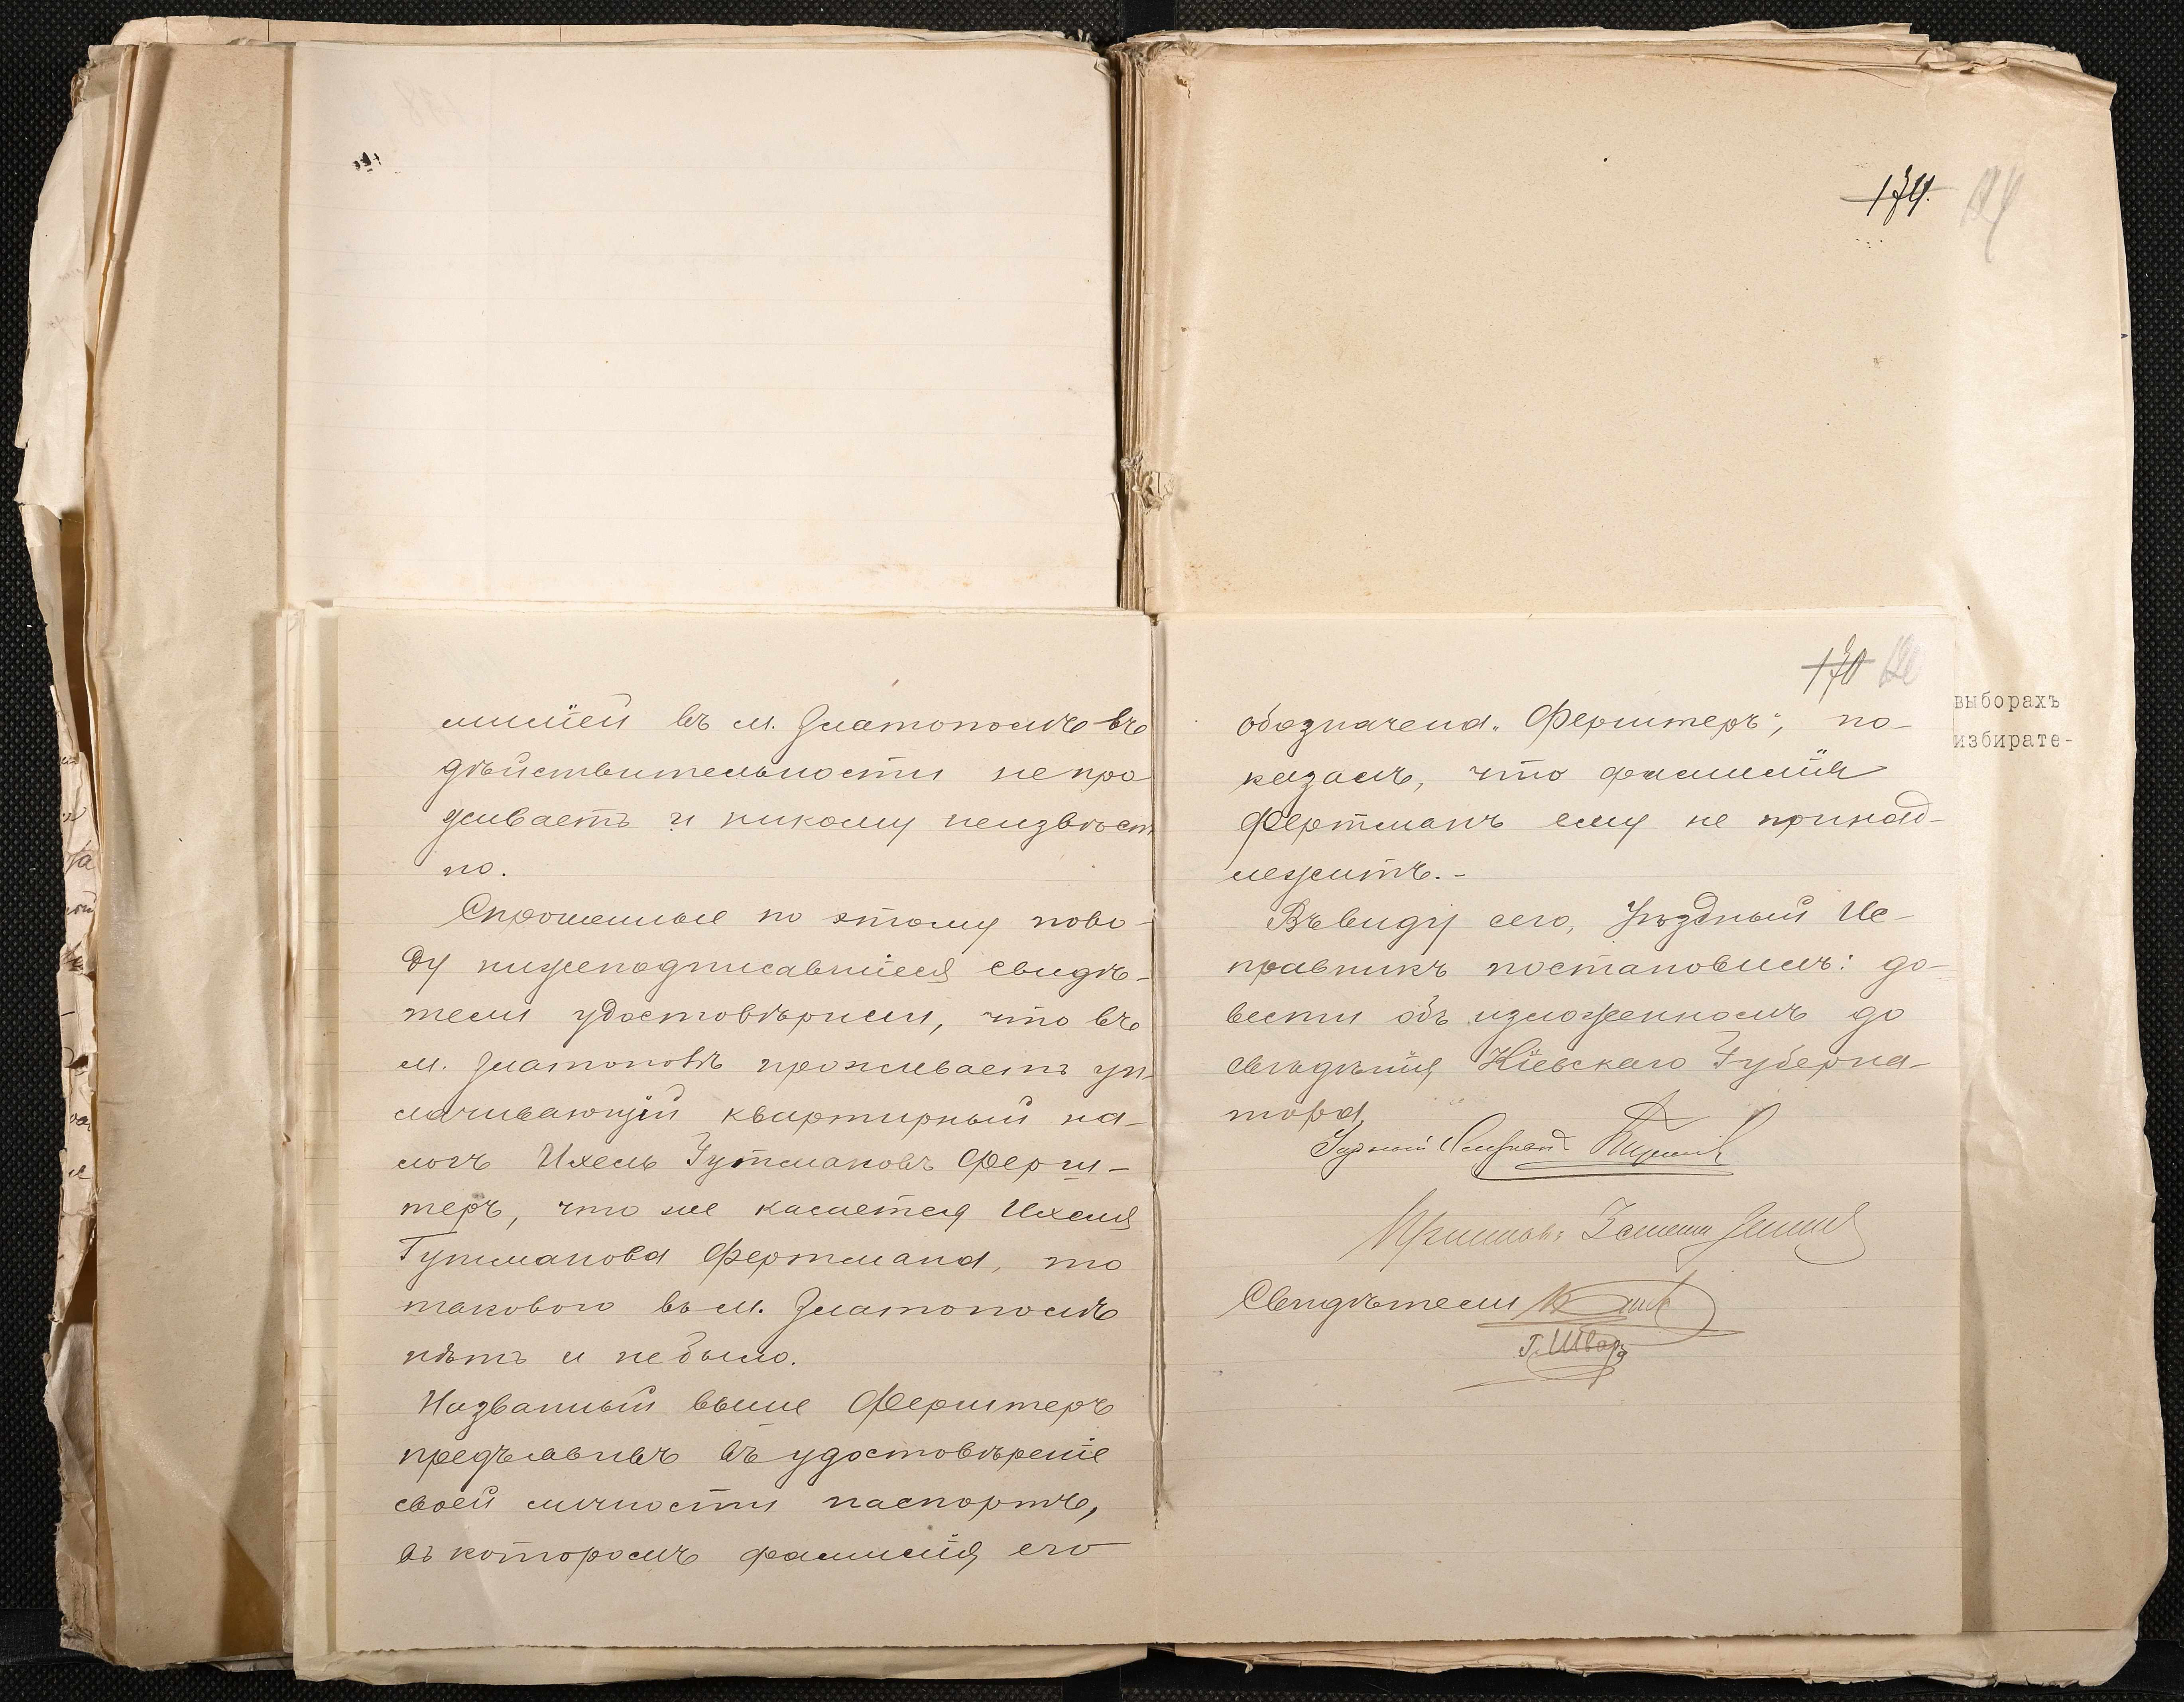 174.
милiей въ м. Златополѣ въ
дѣйствительности не про
живаетъ и никому неизвѣст
но.
Спрошенные по этому пово-
ду нижеподписавшiеся свидѣ-
тели удостовѣрили, что въ
м. Златополѣ проживаетъ уп-
лачивающiй квартирный на-
логъ Ихель Гутмановъ Ферш-
теръ, что же касается Ихеля
Гутманова Фертмана, то
такового въ м. Златополѣ
нѣтъ и не было.
Названный выше Ферштеръ
предъявивъ въ удостовѣренiе
своей личности паспортъ,
въ которомъ фамилiя его
170
обозначена „Ферштеръ", по-
казалъ, что фамилiя
Фертманъ ему не принад-
лежитъ.-
Въ виду сего, Уѣздный Ис-
правникъ постановилъ: до-
вести объ изложенномъ до
свѣдѣнiя Кiевскаго Губерна-
тора.
Свидѣтели
Г. Шварц
выборахъ
избирате-